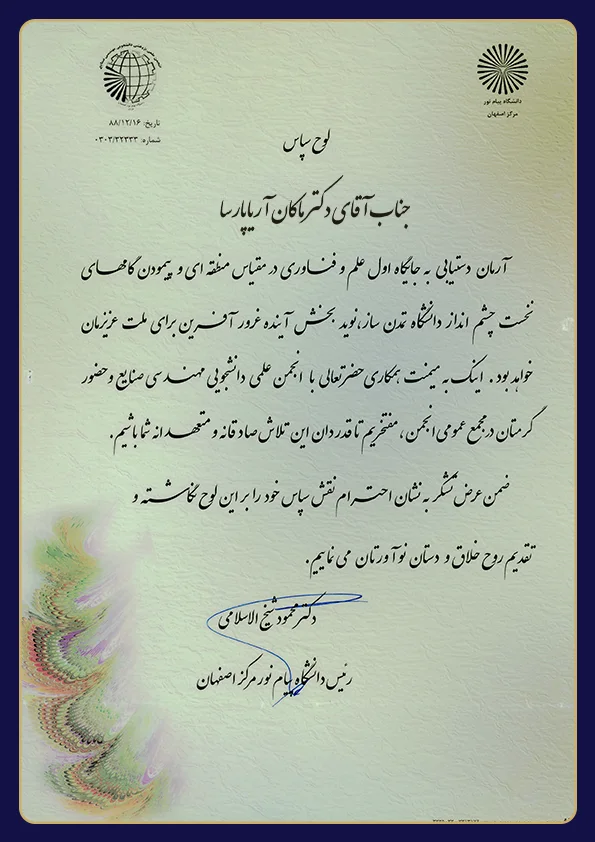 دانشگاه پیام نور
مرکز اصفهان
تاریخ: ۸۸/۱۲/۱۶
شماره: ۰۳۰۳/۲۲۳۳۳
لوح سپاس
جناب آقای دکتر ماکان آریاپارسا
آرمان دستیابی به جایگاه اول علم و فناوری در مقیاس منطقه ای و پیمودن گامهای
نخست چشم انداز دانشگاه تمدن ساز، نوید بخش آینده غرور آفرین برای ملت عزیزمان
خواهد بود. اینک به میمنت همکاری حضرتعالی با انجمن علمی دانشجویی مهندسی صنایع و حضور
گرمتان در مجمع عمومی انجمن، مفتخریم تا قدر دان این تلاش صادقانه و متعهدانه شما باشیم.
ضمن عرض تشکر به نشان احترام نقش سپاس خود را بر این لوح نگاشته و
تقدیم روح خلاق و دستان نوآورتان می نماییم.
دکتر محمود شیخ الاسلامی
رئیس دانشگاه پیام نور مرکز اصفهان